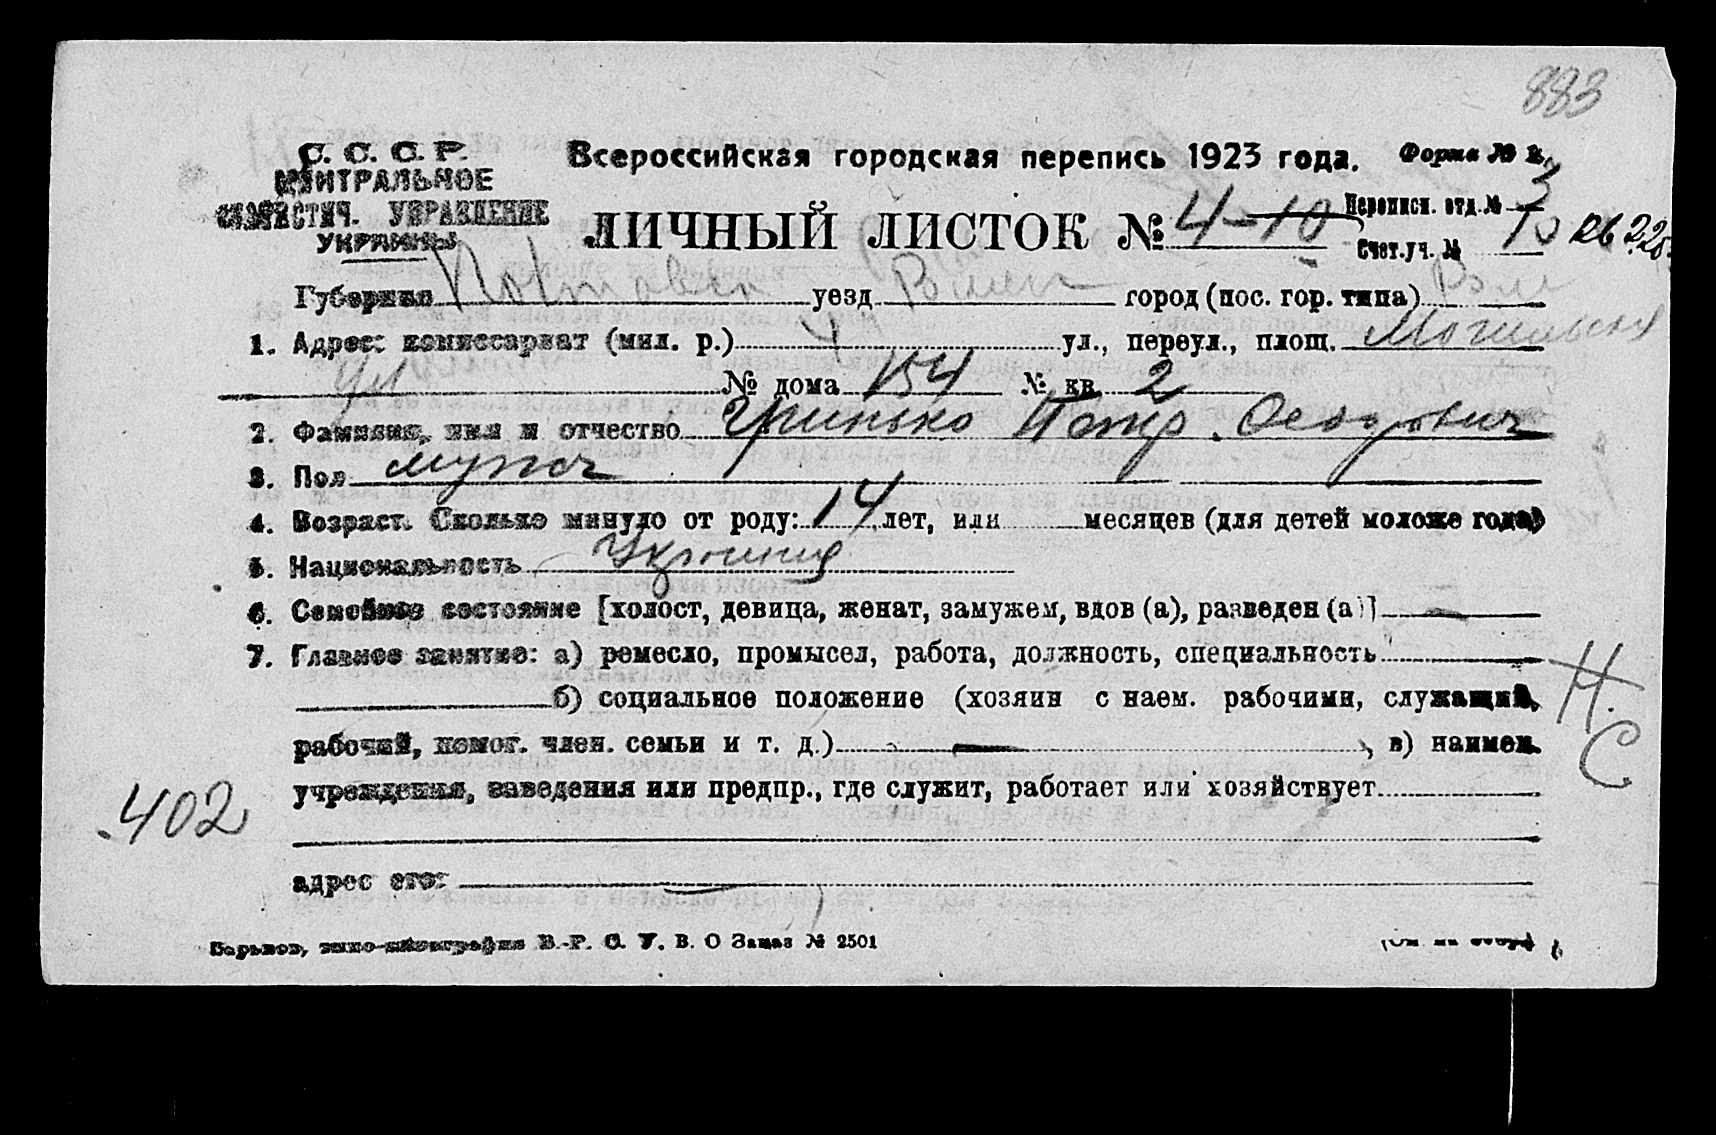 883
С. С. С. Р.
ЦЕНТРАЛЬНОЕ
СТАТИСТИЧ. УПРАВЛЕНИЕ
УКРАИНЫ
Всероссийская городская перепись 1923 года. Форма № 2.
ЛИЧНЫЙ ЛИСТОК № 4-10
Переписн. отд. № 3
Счет.уч. № 10 кв 225.
Губерния Полтавск уезд Ромен город (пос. гор. типа) Ром
1. Адрес: комиссариат (мил. р.) ул., переул., площ. Могильная
ул № дома 154 № кв. 2
2. Фамилия, имя и отчество Гринько Петр Феодорович
3. Пол мужск
4. Возраст. Сколько минуло от роду: 14 лет, или месяцев (для детей моложе года)
5. Национальность Украинец
6. Семейное состояние [холост, девица, женат, замужем, вдов (а), разведен (а)] —
7. Главное занятие: а) ремесло, промысел, работа, должность, специальность —
б) социальное положение (хозяин с наем. рабочими, служащий,
рабочий, помог. член. семьи и т. д.) — , в) наимен.
Н.
С
учреждения, заведения или предпр., где служит, работает или хозяйствует
402
адрес его: —
Харьков, типо-литография В.-Р. С. У. В. О Заказ № 2501